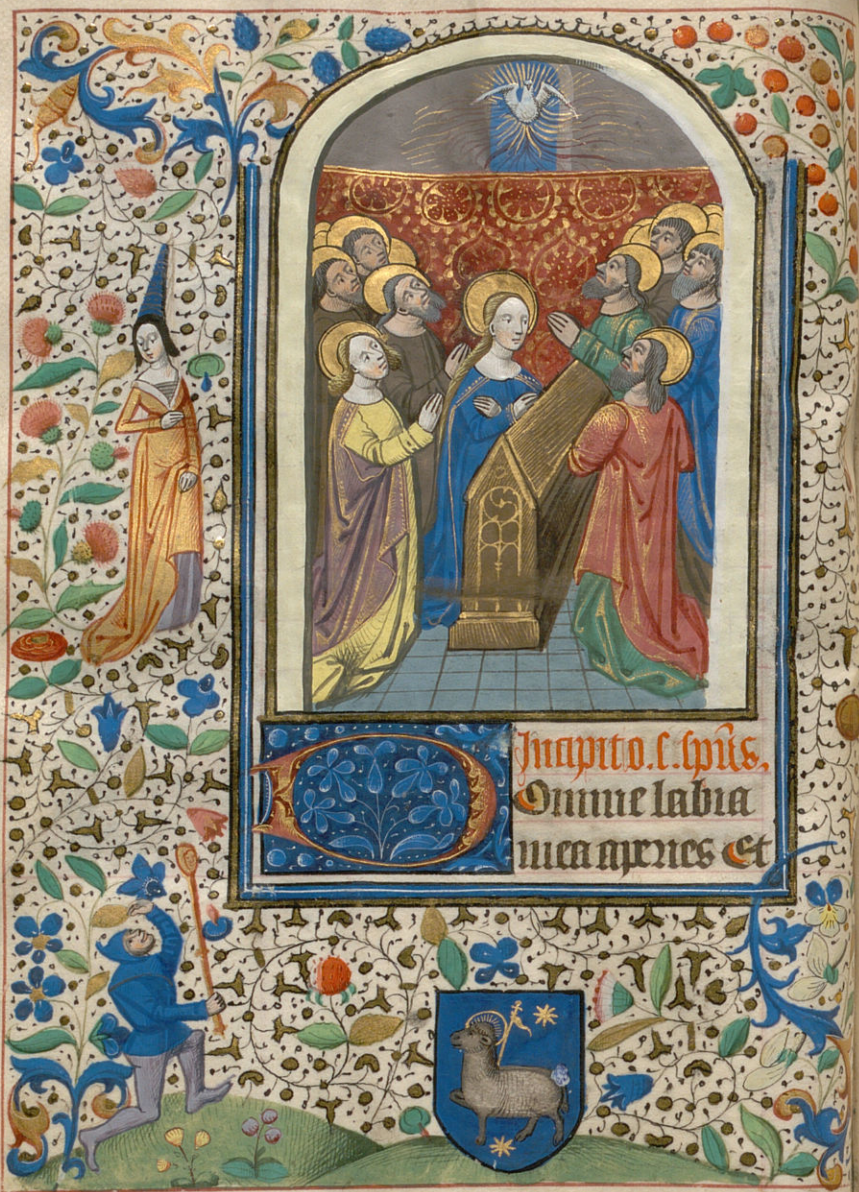 Incipit o. s. spūs.
Domine labia
mea aperies Et